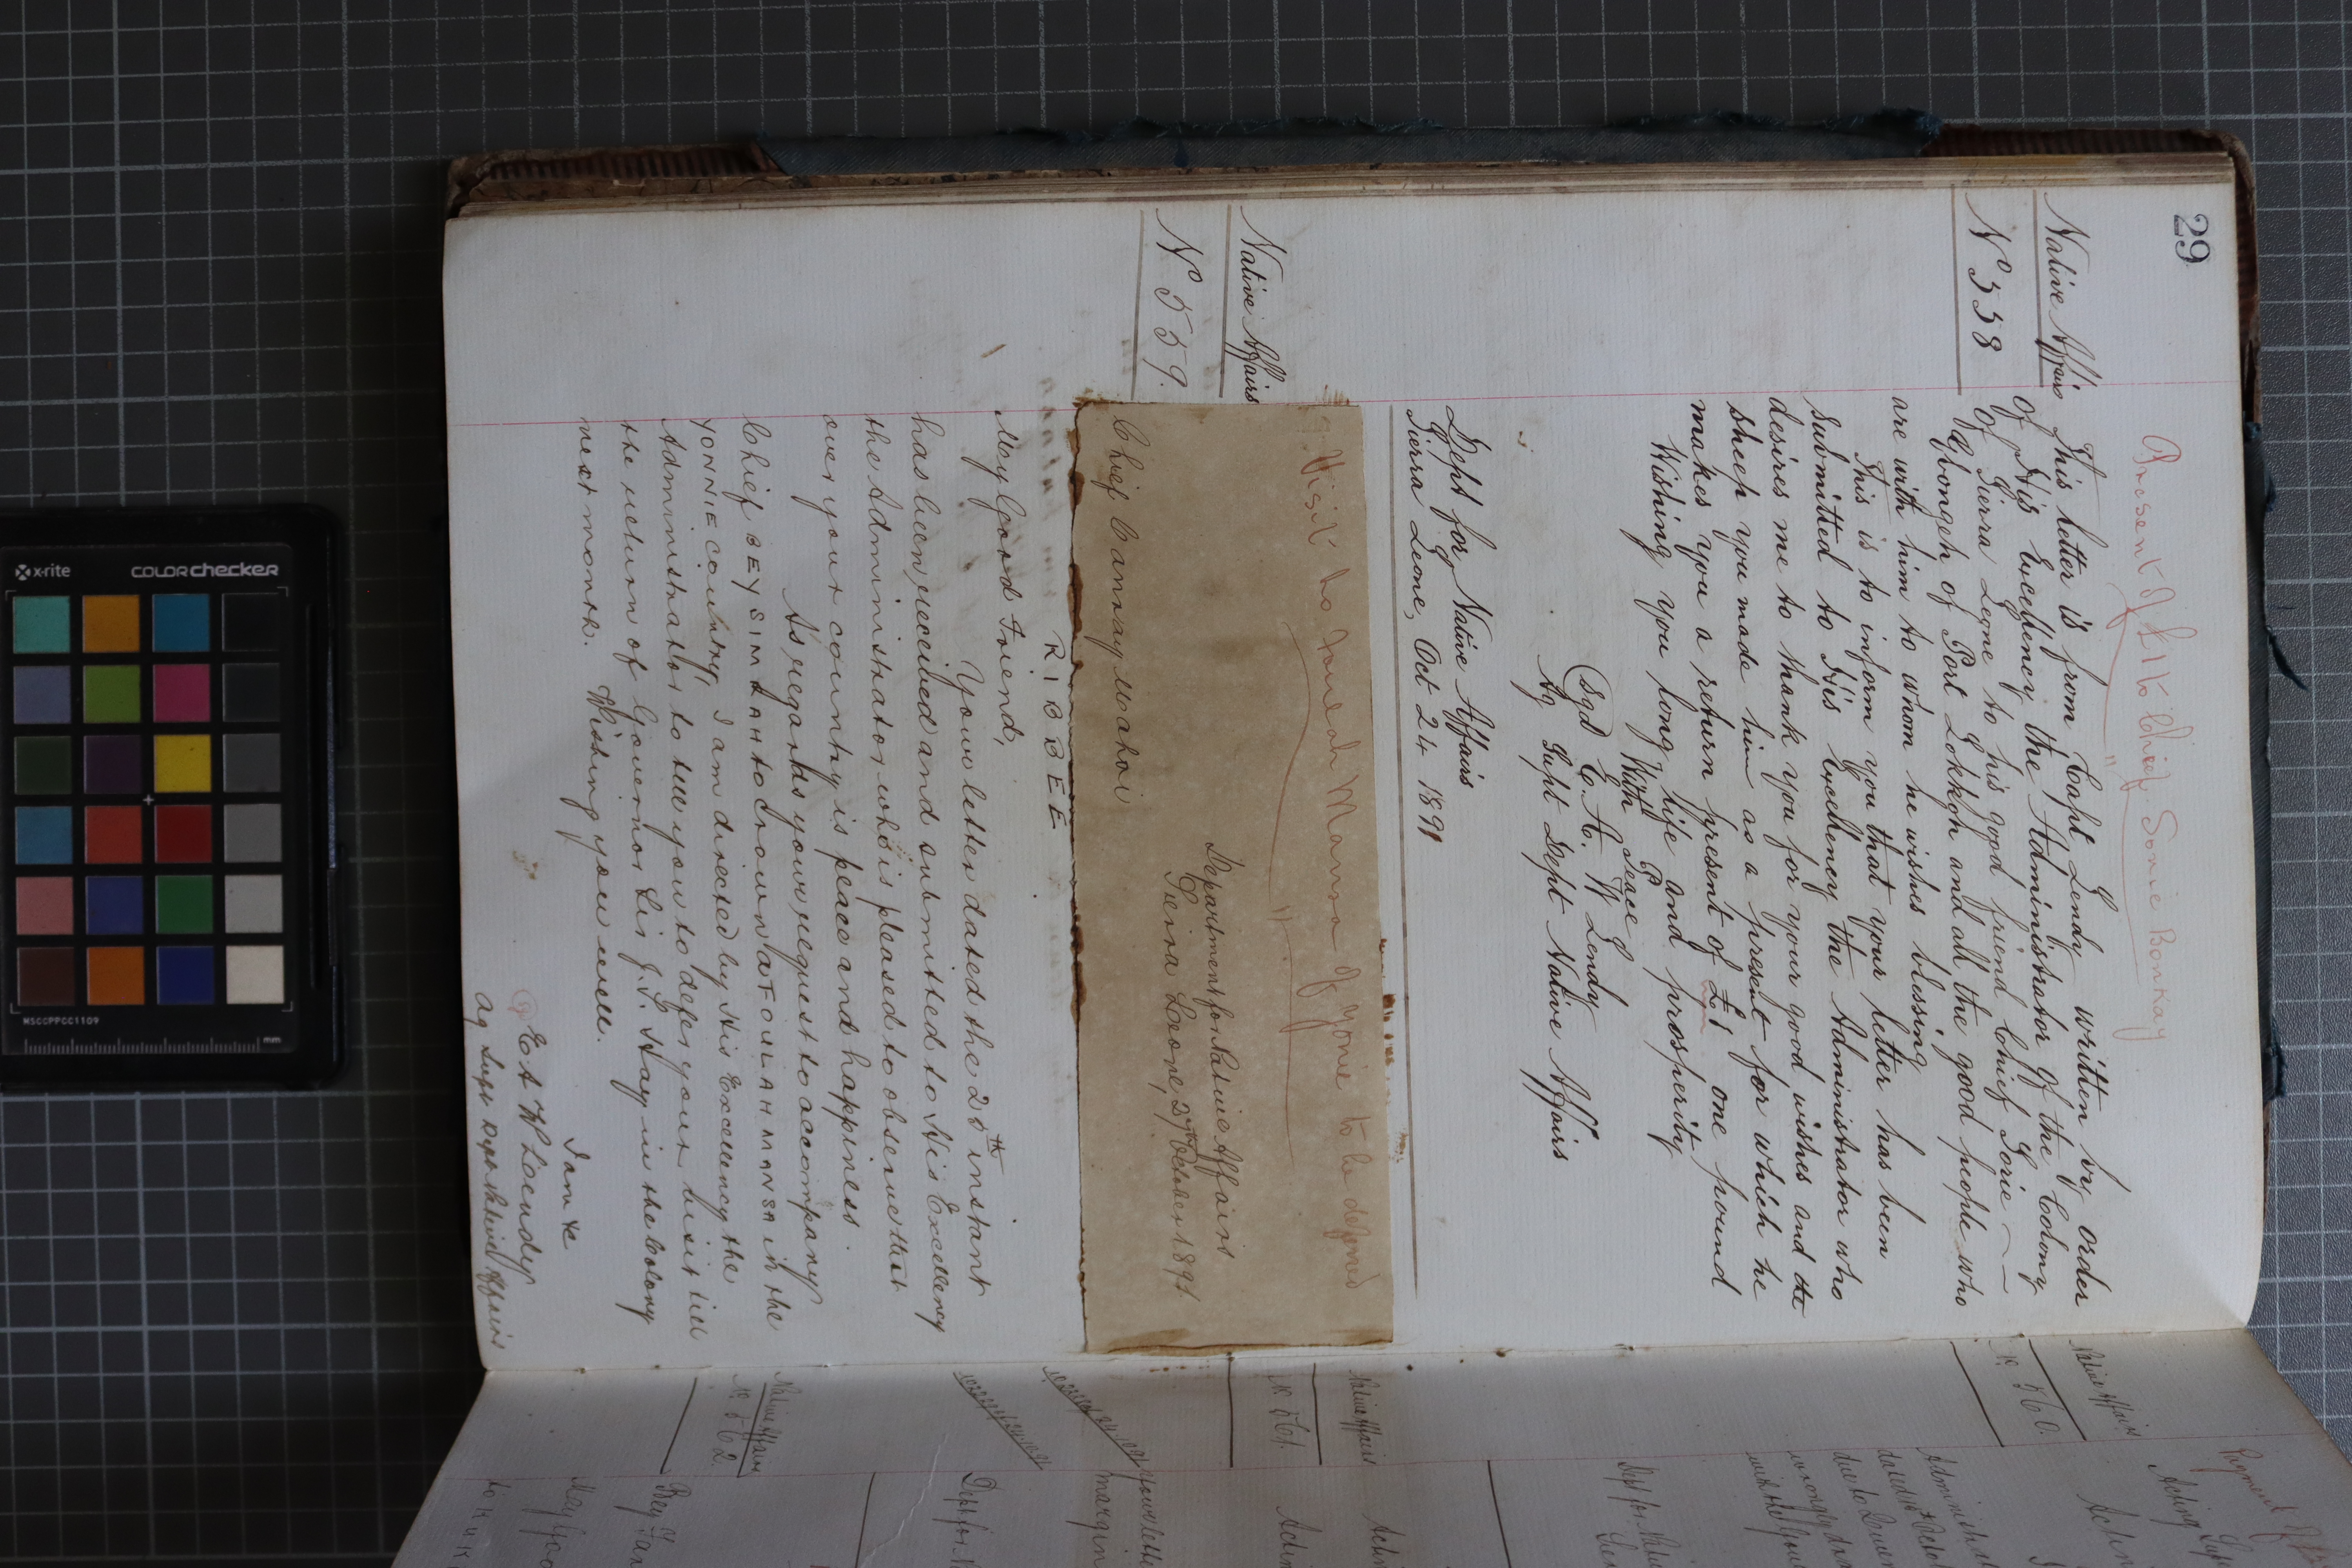 29
Present of £1 to Chief Sorie Bonkay
Native Affairs
N° 558
This letter is from Capt Lendy written by order
of His Excellency the Administrator of the Colony
of Sierra Leone to his good friend Chief Sorie
Gbongeh of Port Lokkoh and all the good people who
are with him to whom he wishes blessing
This is to inform you that your letter has been
submitted to His Excellency the Administrator who
desires me to thank you for your good wishes and the
sheep you made him as a present for which he
makes you a return present of £1 one pound
Wishing you long life and prosperity
With Peace
(Sgd) E. A. W Lendy
Ag Supt Dept Native Affairs
Dept for Native Affairs
Sierra Leone, Oct 24 1891
Visit to Fouelah Mansa of Yonie to be deferred
Native Affairs
N° 559.
Department for Native Affairs
Sierra Leone, 27th October 1891
Chief Canray Mahoi
RIBBEE
My Good Friend,
Your letter dated the 25th instant
has been received and submitted to His Excellency
the Administrator who is pleased to observe that
over your country is peace and happiness.
As regards your request to accompany
Chief BEY SIMRAH to crown A FOULAH MANSA in the
YONNIE country, I am directed by His Excellency the
Administrator to tell you to defer your visit till
the return of Governor Sir J. S. Hay in the Colony
next month. Wishing you well.
I am &c
E A W Lendy
Ag Supt Dept Native Affairs
Native Affairs
N° 560.
Payment of
Acting
Native Affairs
N° 561.
Native Affairs
N° 562.